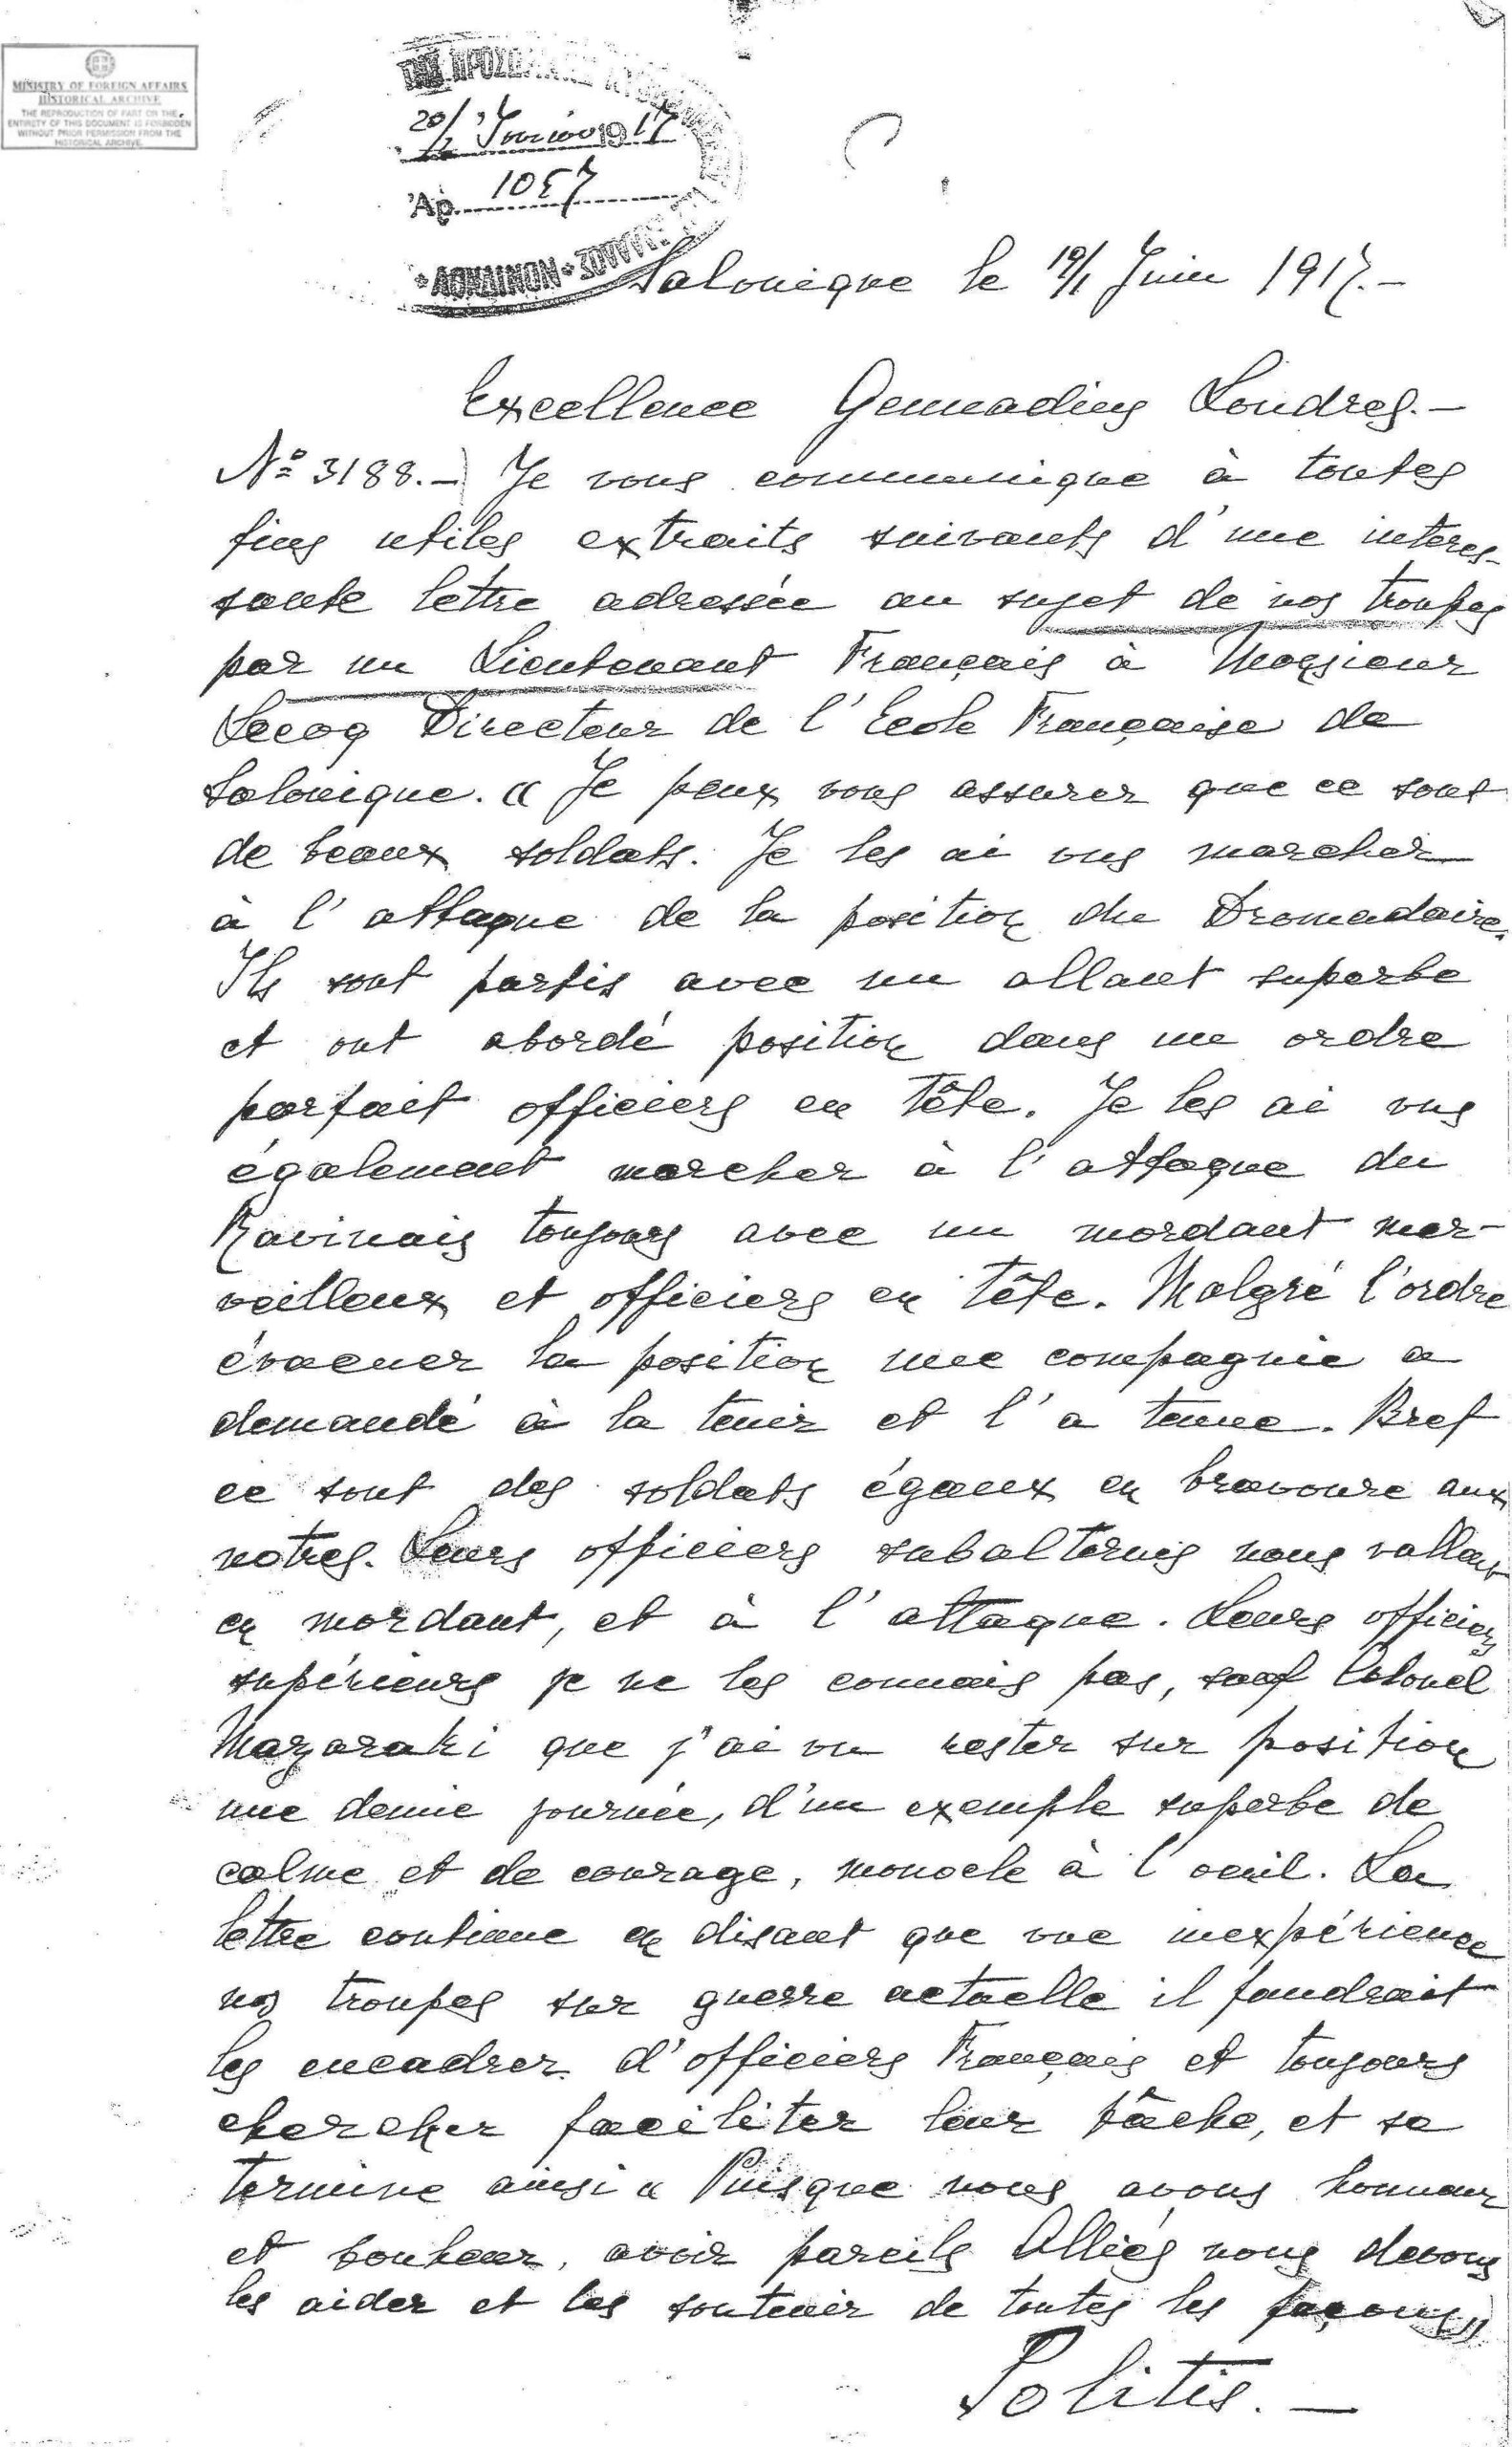 MINISTRY OF FOREIGN AFFAIRS
HISTORICAL ARCHIVE
THE REPRODUCTION OF PART OR THE
ENTIRETY OF THIS DOCUMENT IS FORBIDDEN
WITHOUT PRIOR PERMISSION FROM THE
HISTORICAL ARCHIVE.
20/2 Ἰουνίου 1917
Ἀρ. 1057
Salonique le 19/1 Juin 1917.-
Excellence Gennadius Londres.-
Nº 3188.-) Je vous communique à toutes
fins utiles extraits suivants d'une interes-
sante lettre adressée au sujet de nos troupes
par un Lieutenant Français à Monsieur
Lecoq Directeur de l'Ecole Française de
Salonique. « Je peux vous assurer que ce sont
de beaux soldats. Je les ai vus marcher
à l'attaque de la position du Dromadaire.
Ils sont partis avec un allant superbe
et ont abordé position dans un ordre
parfait officiers en tête. Je les ai vus
également marcher à l'attaque du
Ravinais toujours avec un mordant mer-
veilleux et officiers en tête. Malgré l'ordre
évacuer la position une compagnie a
demandé à la tenir et l'a tenue. Bref
ce sont des soldats égaux en bravoure aux
notres. Leurs officiers subalternes nous vallent
en mordant, et à l'attaque. Leurs officiers
supérieurs je ne les connais pas, sauf Colonel
Mazaraki que j'ai vu rester sur position
une demie journée, d'un exemple superbe de
calme et de courage, monocle à l'oeuil. La
lettre continue en disant que vue inexpérience
nos troupes sur guerre actuelle il faudrait
les encadrer d'officiers Français et toujours
chercher faciliter leur tâche, et se
termine ainsi « Puisque nous avons honneur
et bonheur, avoir pareils Alliés nous devons
les aider et les soutenir de toutes les façons»
Politis.-